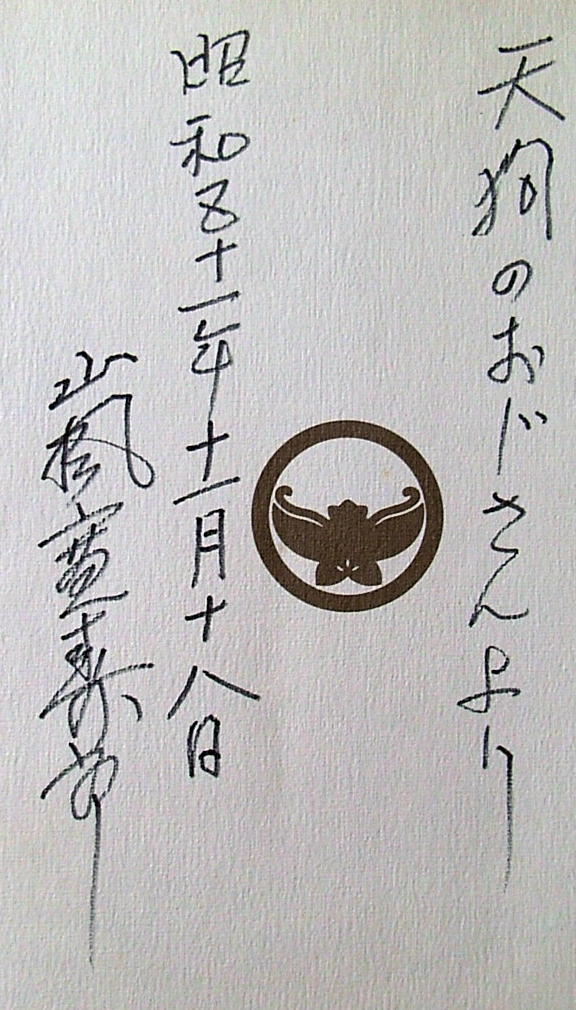 天狗のおじさんより
昭和五十一年十一月十八日
嵐寛寿郎